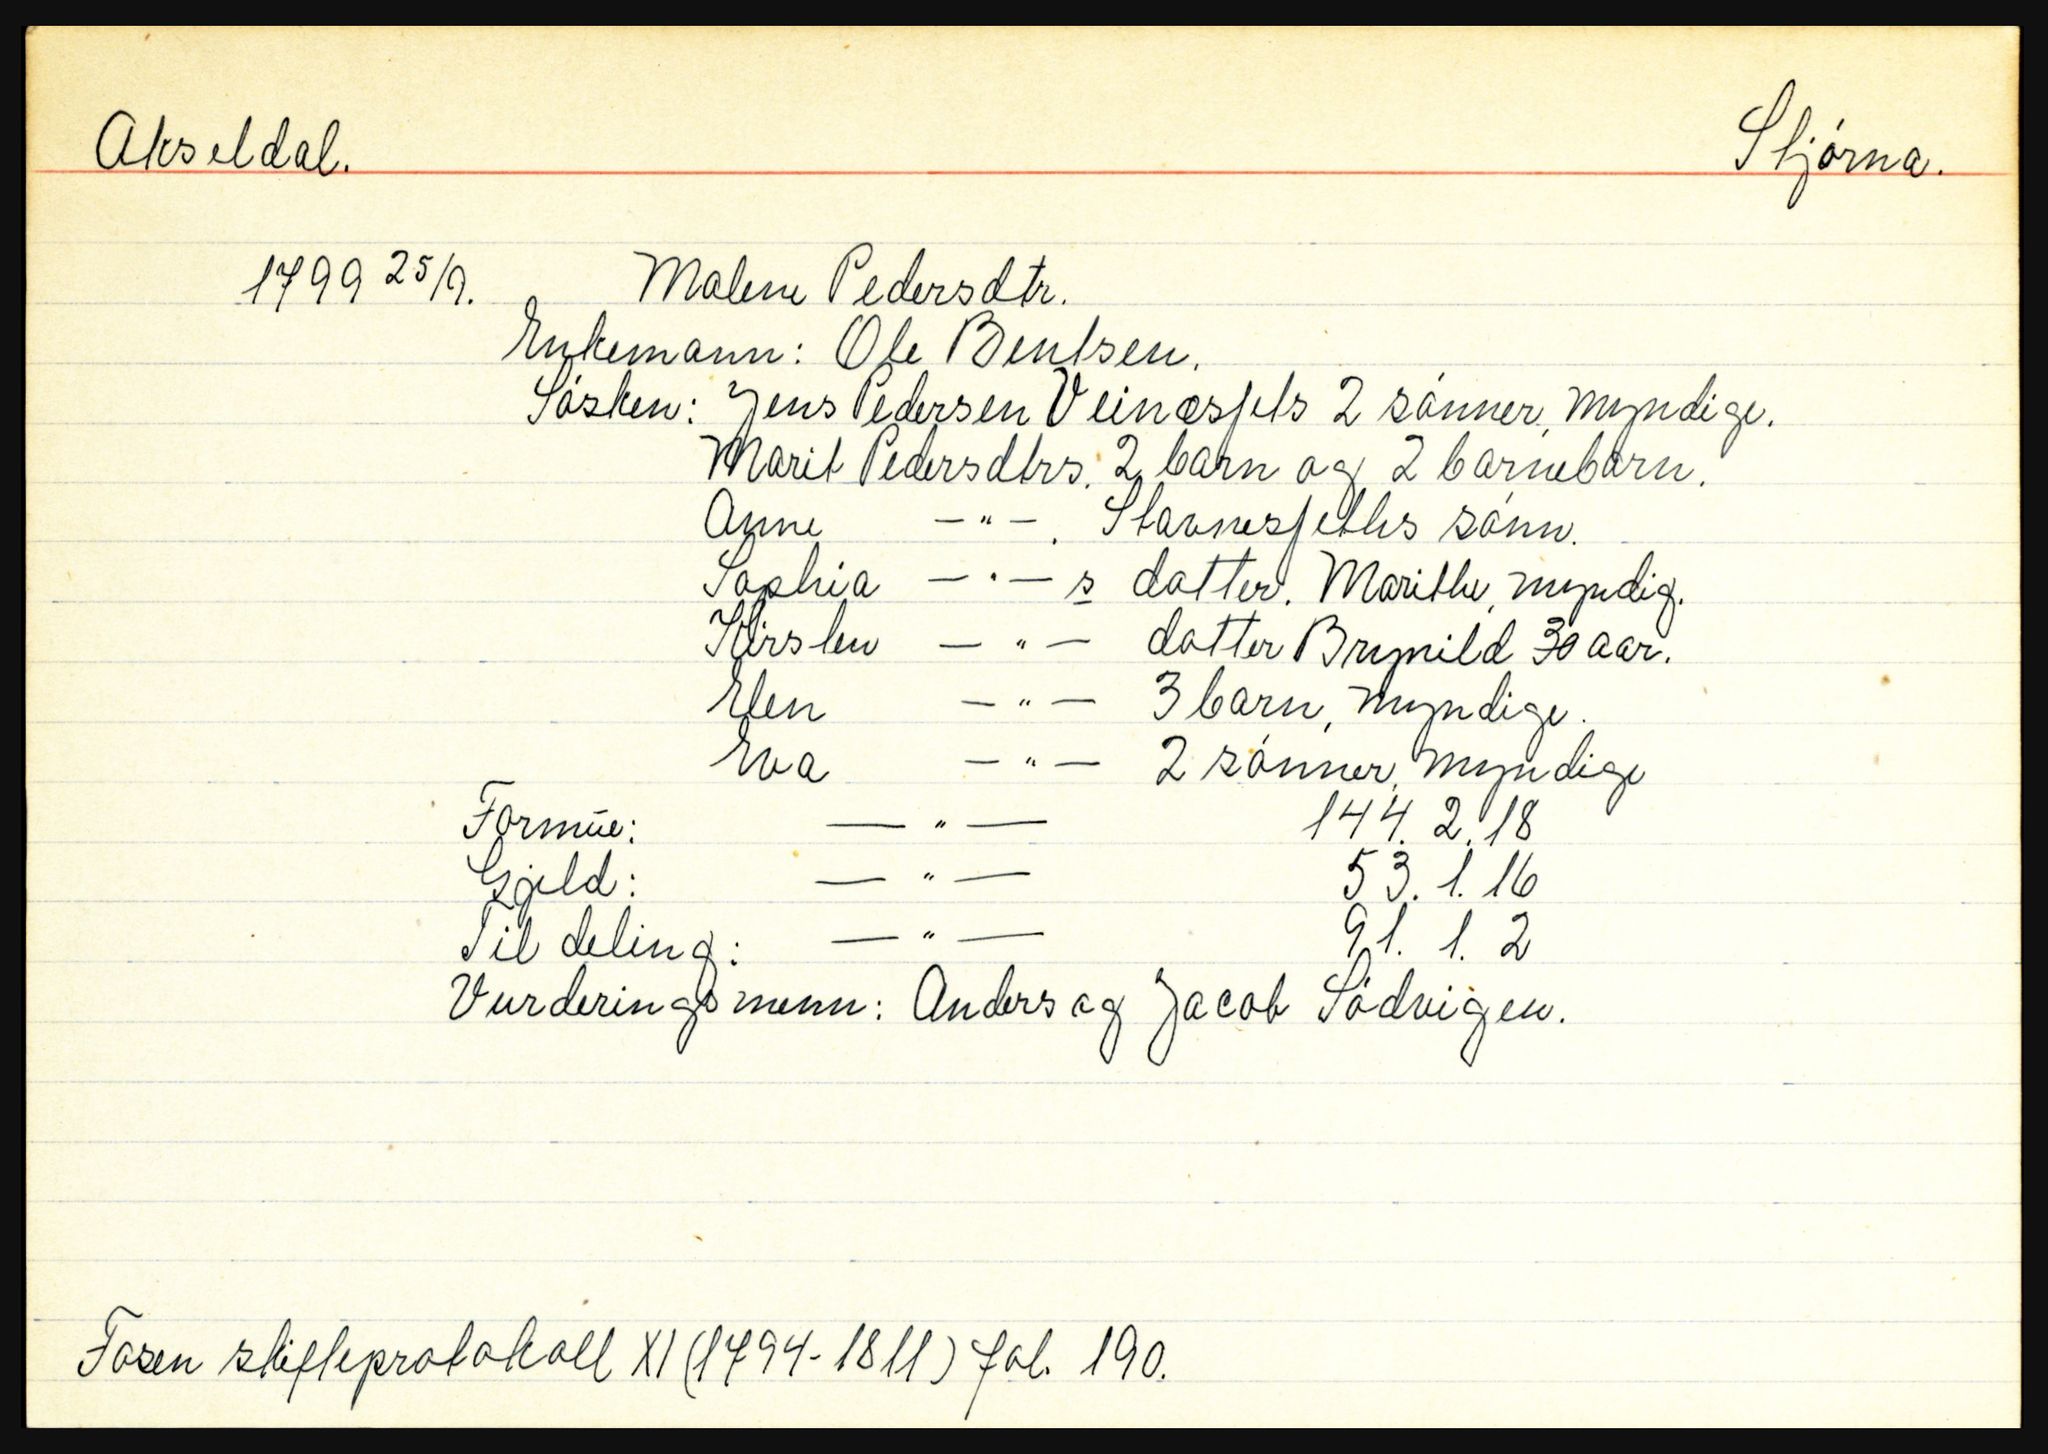 Akseldal. Stjørna.
1799 25/9. Malene Pedersdtr.
Enkemann: Ole Bentsen.
Søsken: Jens Pedersen Veinæsfets 2 sønner, myndige.
Marit Pedersdtrs. 2 barn og 2 barnebarn.
Anne —"—. Stavnesfeths sønn.
Sophia —"— s datter. Marithe, myndig.
Kirsten —"— datter Brynild 30 aar.
Elen —"— 3 barn, myndige.
Eva —"— 2 sønner, myndige
Formue: —"— 144. 2. 18
Gjeld: —"— 53. 1. 16
Til deling: —"— 91. 1. 2
Vurderingsmenn: Anders og Jacob Sødvigen.
Fosen skifteprotokoll XI (1794-1811) fol. 190.